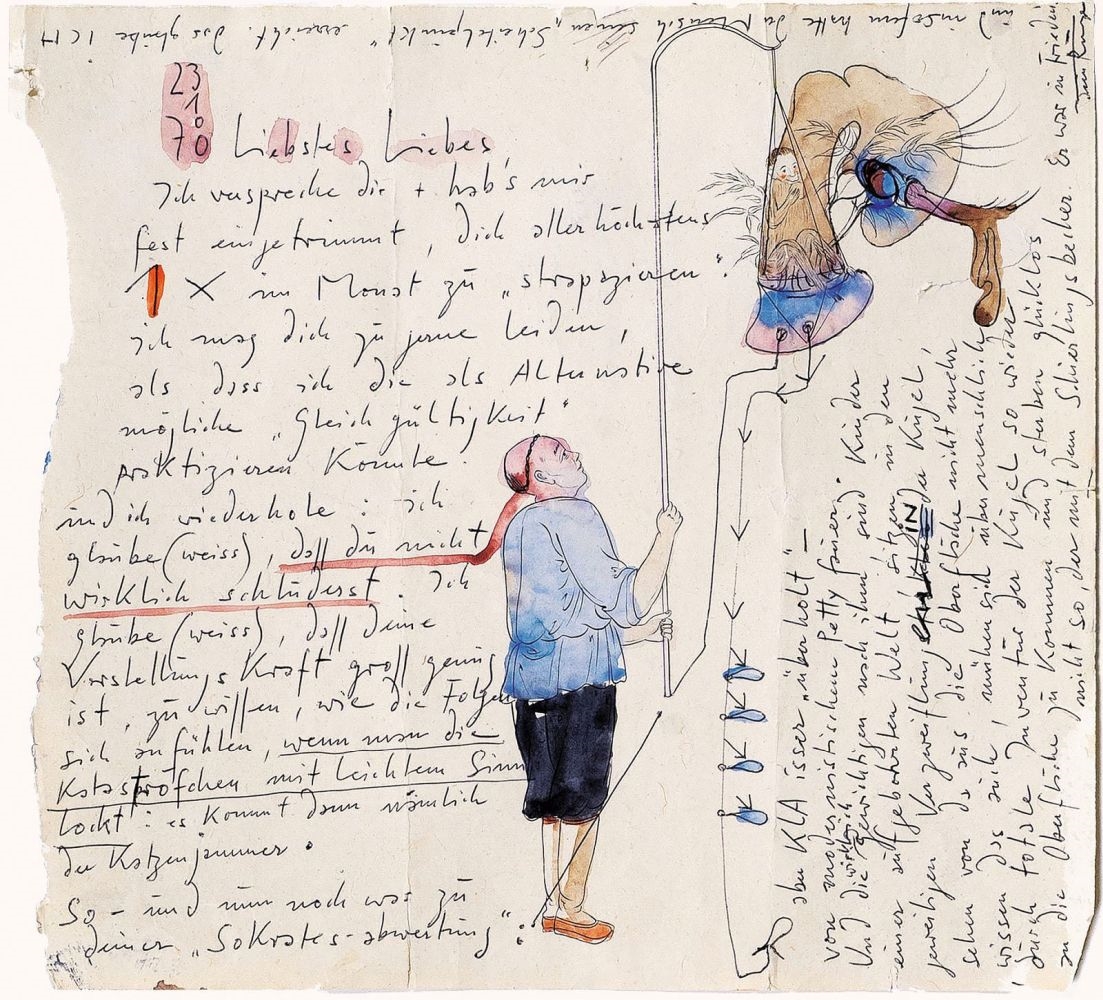 23
1
0
70 Liebstes Liebes,
Ich verspreche dir + hab's mir
fest eingetrimmt, dich allerhöchstens
1 X im Monat zu „strapazieren".
ich mag dich zu jerne leiden,
als dass ich die als Alternative
mögliche „Gleichgültigkeit"
praktizieren könnte.
und ich wiederhole: ich
glaube (weiss), daß du nicht
wirklich schluderst. Ich
glaube (weiss), daß deine
Vorstellungskraft groß genug
ist, zu wissen, wie die Folgen
sich anfühlen, wenn man die
Katastrôfchen mit leichtem Sinn
lockt: es kommt dann nämlich
der Katzenjammer.
So – und nun noch was zu
deiner „Sokrates-abwertung":
aber KLA isser „überholt" –
von modernistischen Petty
Und die wirklich gewichtigen nach ihm sind Kinder
einer aufgebohrten Welt, sitzen in den
jeweiligen Verzweiflung IN der Kugel,
sehen von da aus die Oberfläche nicht mehr
wissen das auch, mühen sich übermenschlich
durch totale für der Kugel so wieder
zu die Oberfläche zu kommen und sterben glücklos
nicht so, der mit dem Schierlingsbecher. Er war in Frieden
und insofern hatte der Mensch seinen „Scheitelpunkt" erreicht. Das glaube ICH